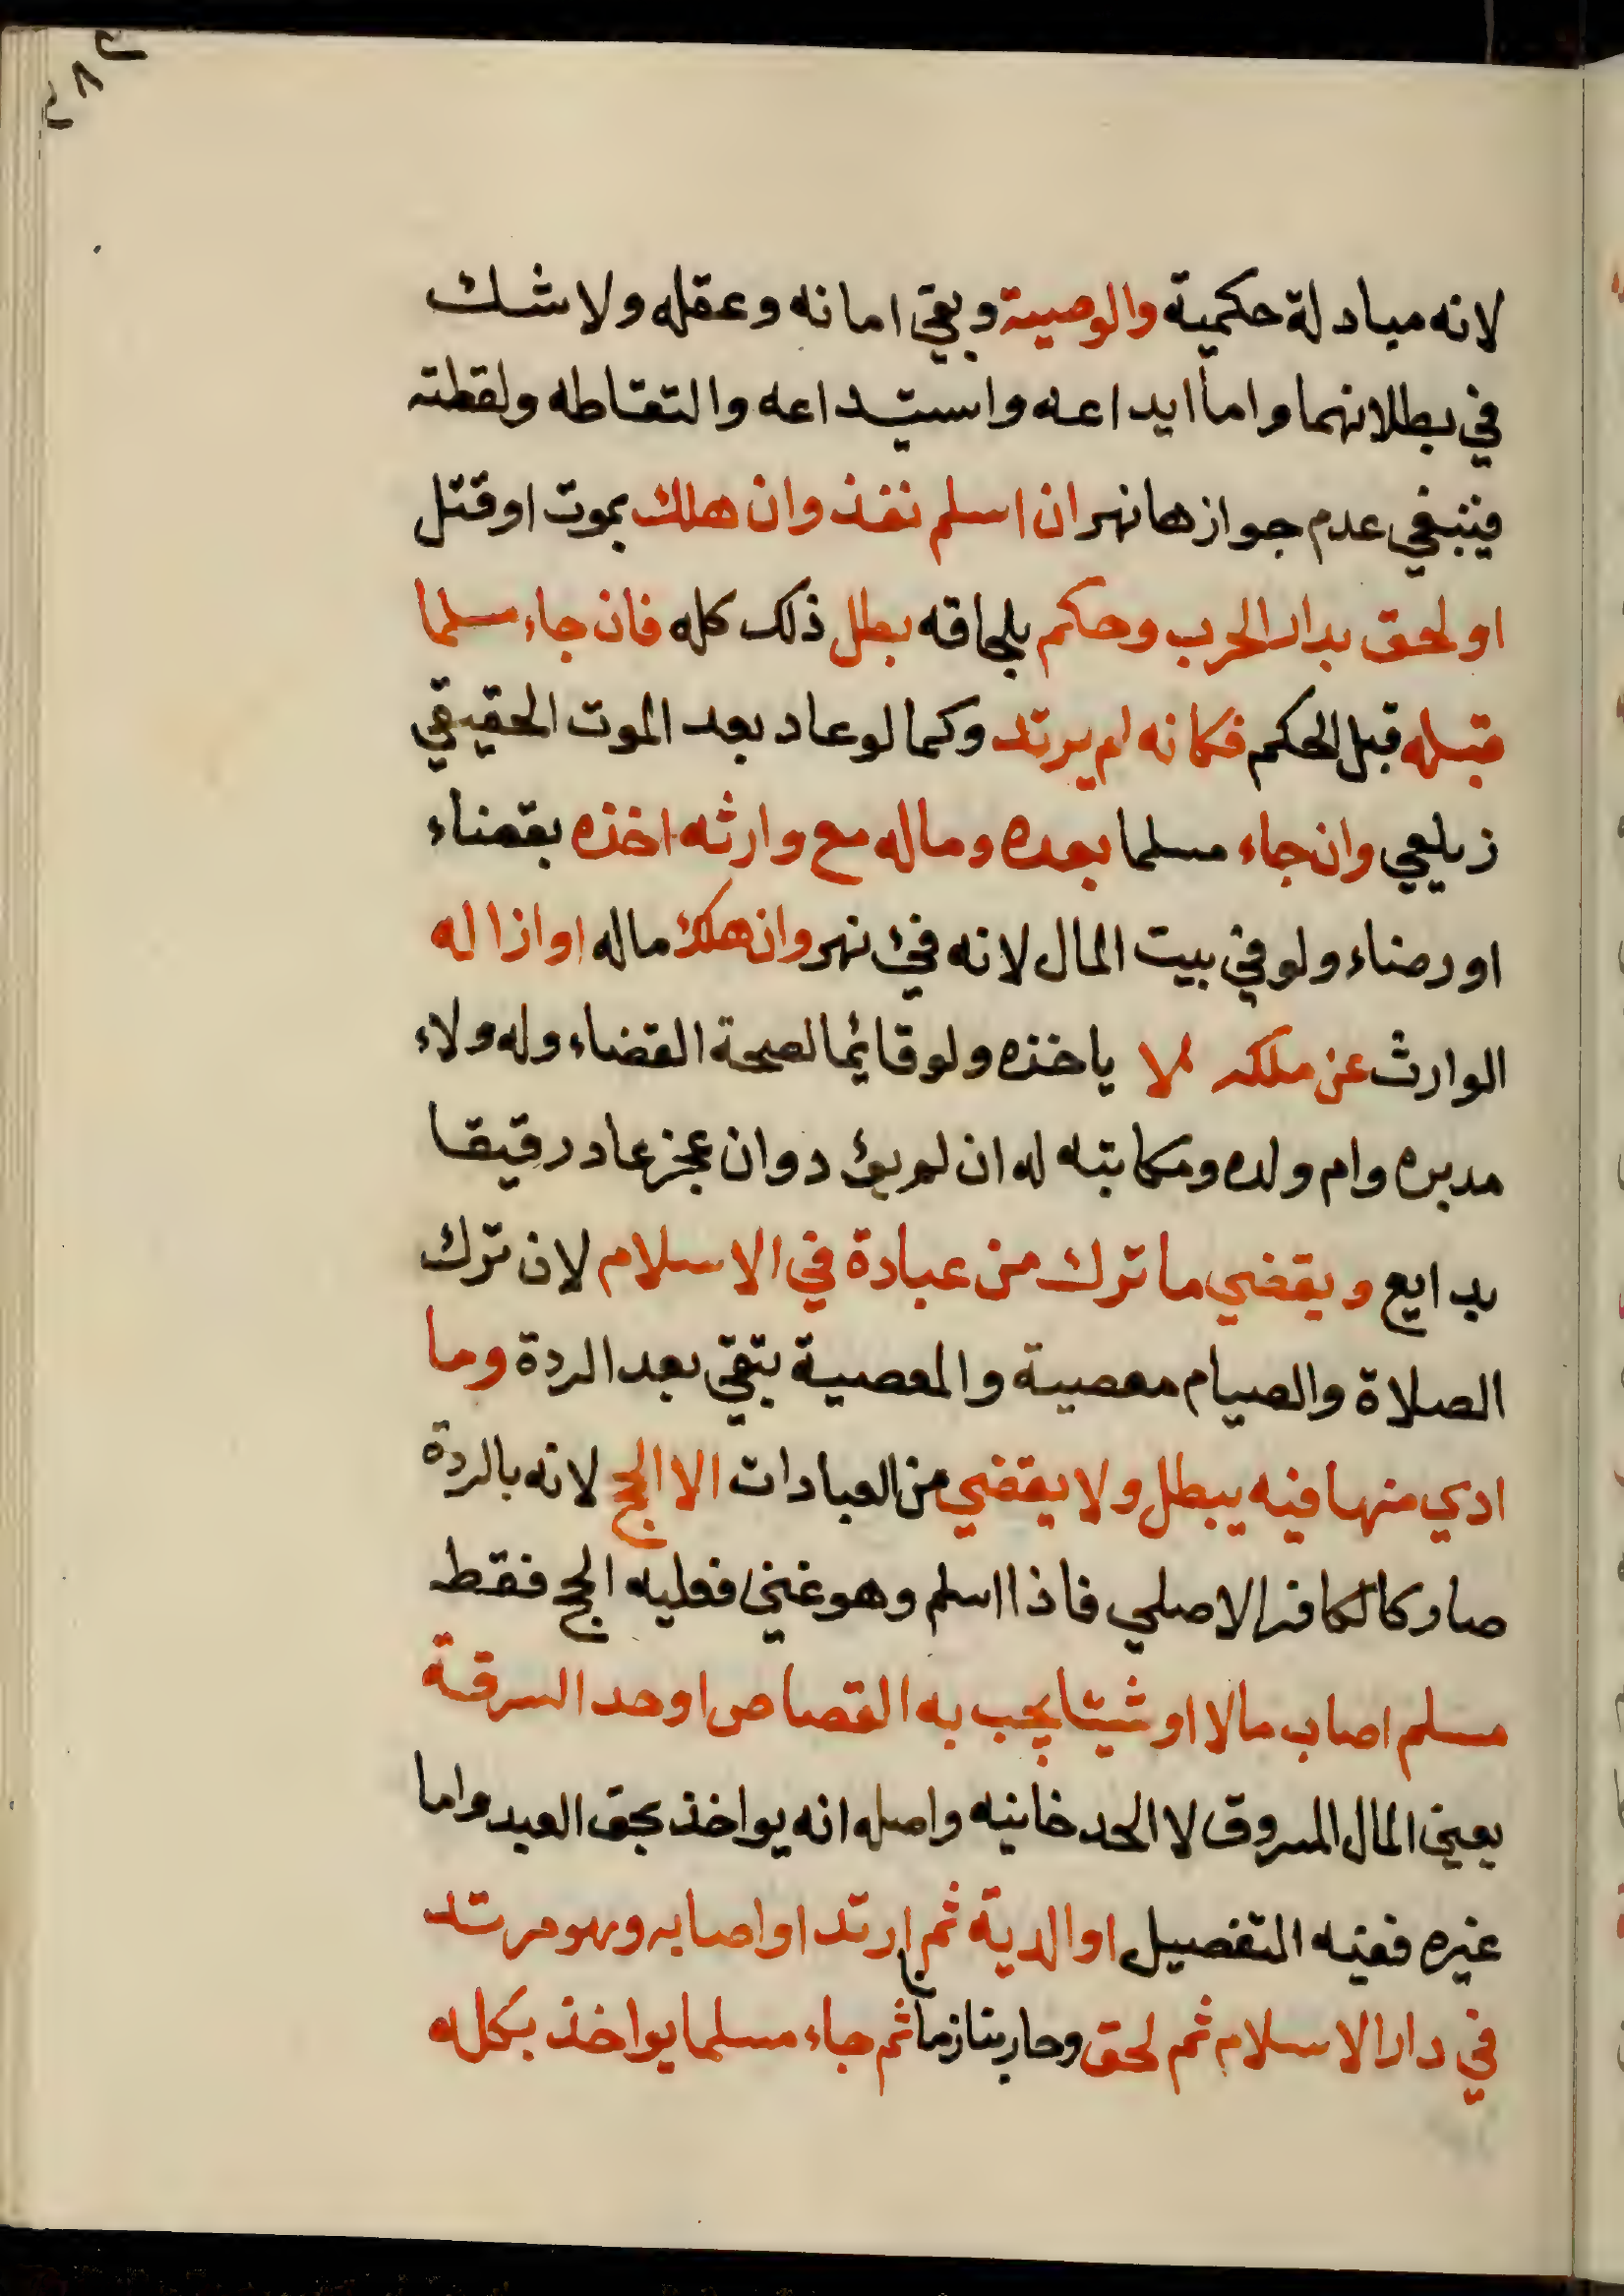 لانه مبادلة حكمية والوصية وبقي امانه وعقله ولا شك
في بطلانهما واما ايداعه واستيداعه والتقاطه ولقطته
فينبغي عدم جوازها نهر ان اسلم نفذ وان هلك بموت او قتل
او لحق بدار الحرب وحكم بلحاقه بطل ذلك كله فان جاء مسلما
قبله قبل الحكم فكانه لم يرتد وكما لو عاد بعد الموت الحقيقي
زيلعي وان جاء مسلما بعده وماله مع وارثه اخذه بقضاء
او رضاء ولو في بيت المال لانه فئ نهر وان هلك ماله او ازاله
الوارث عن ملكه لا ياخذه ولو قائما لصحة القضاء وله ولاء
مدبره وام ولده ومكاتبته له ان لم يؤد وان عجز عاد رقيقا
بدايع ويقضي ما ترك من عبادة في الاسلام لان ترك
الصلاة والصيام معصية والمعصية بتقي بعد الردة وما
ادي منها فيه يبطل ولا يقضي من العبادات الا الحج لانه بالردة
صار كالكافر الاصلي فاذا اسلم وهو غني فعليه الحج فقط
مسلم اصاب مالا او شيئا يجب به القصاص او حد السرقة
يعني المال المسروق لا الحد خانيه واصله انه يواخذ بحق العبد واما
غيره ففيه التفصيل او الدية ثم ارتد او اصابه وهو مرتد
في دار الاسلام ثم لحق وحاربنا زمانا ثم جاء مسلما يواخذ بكله